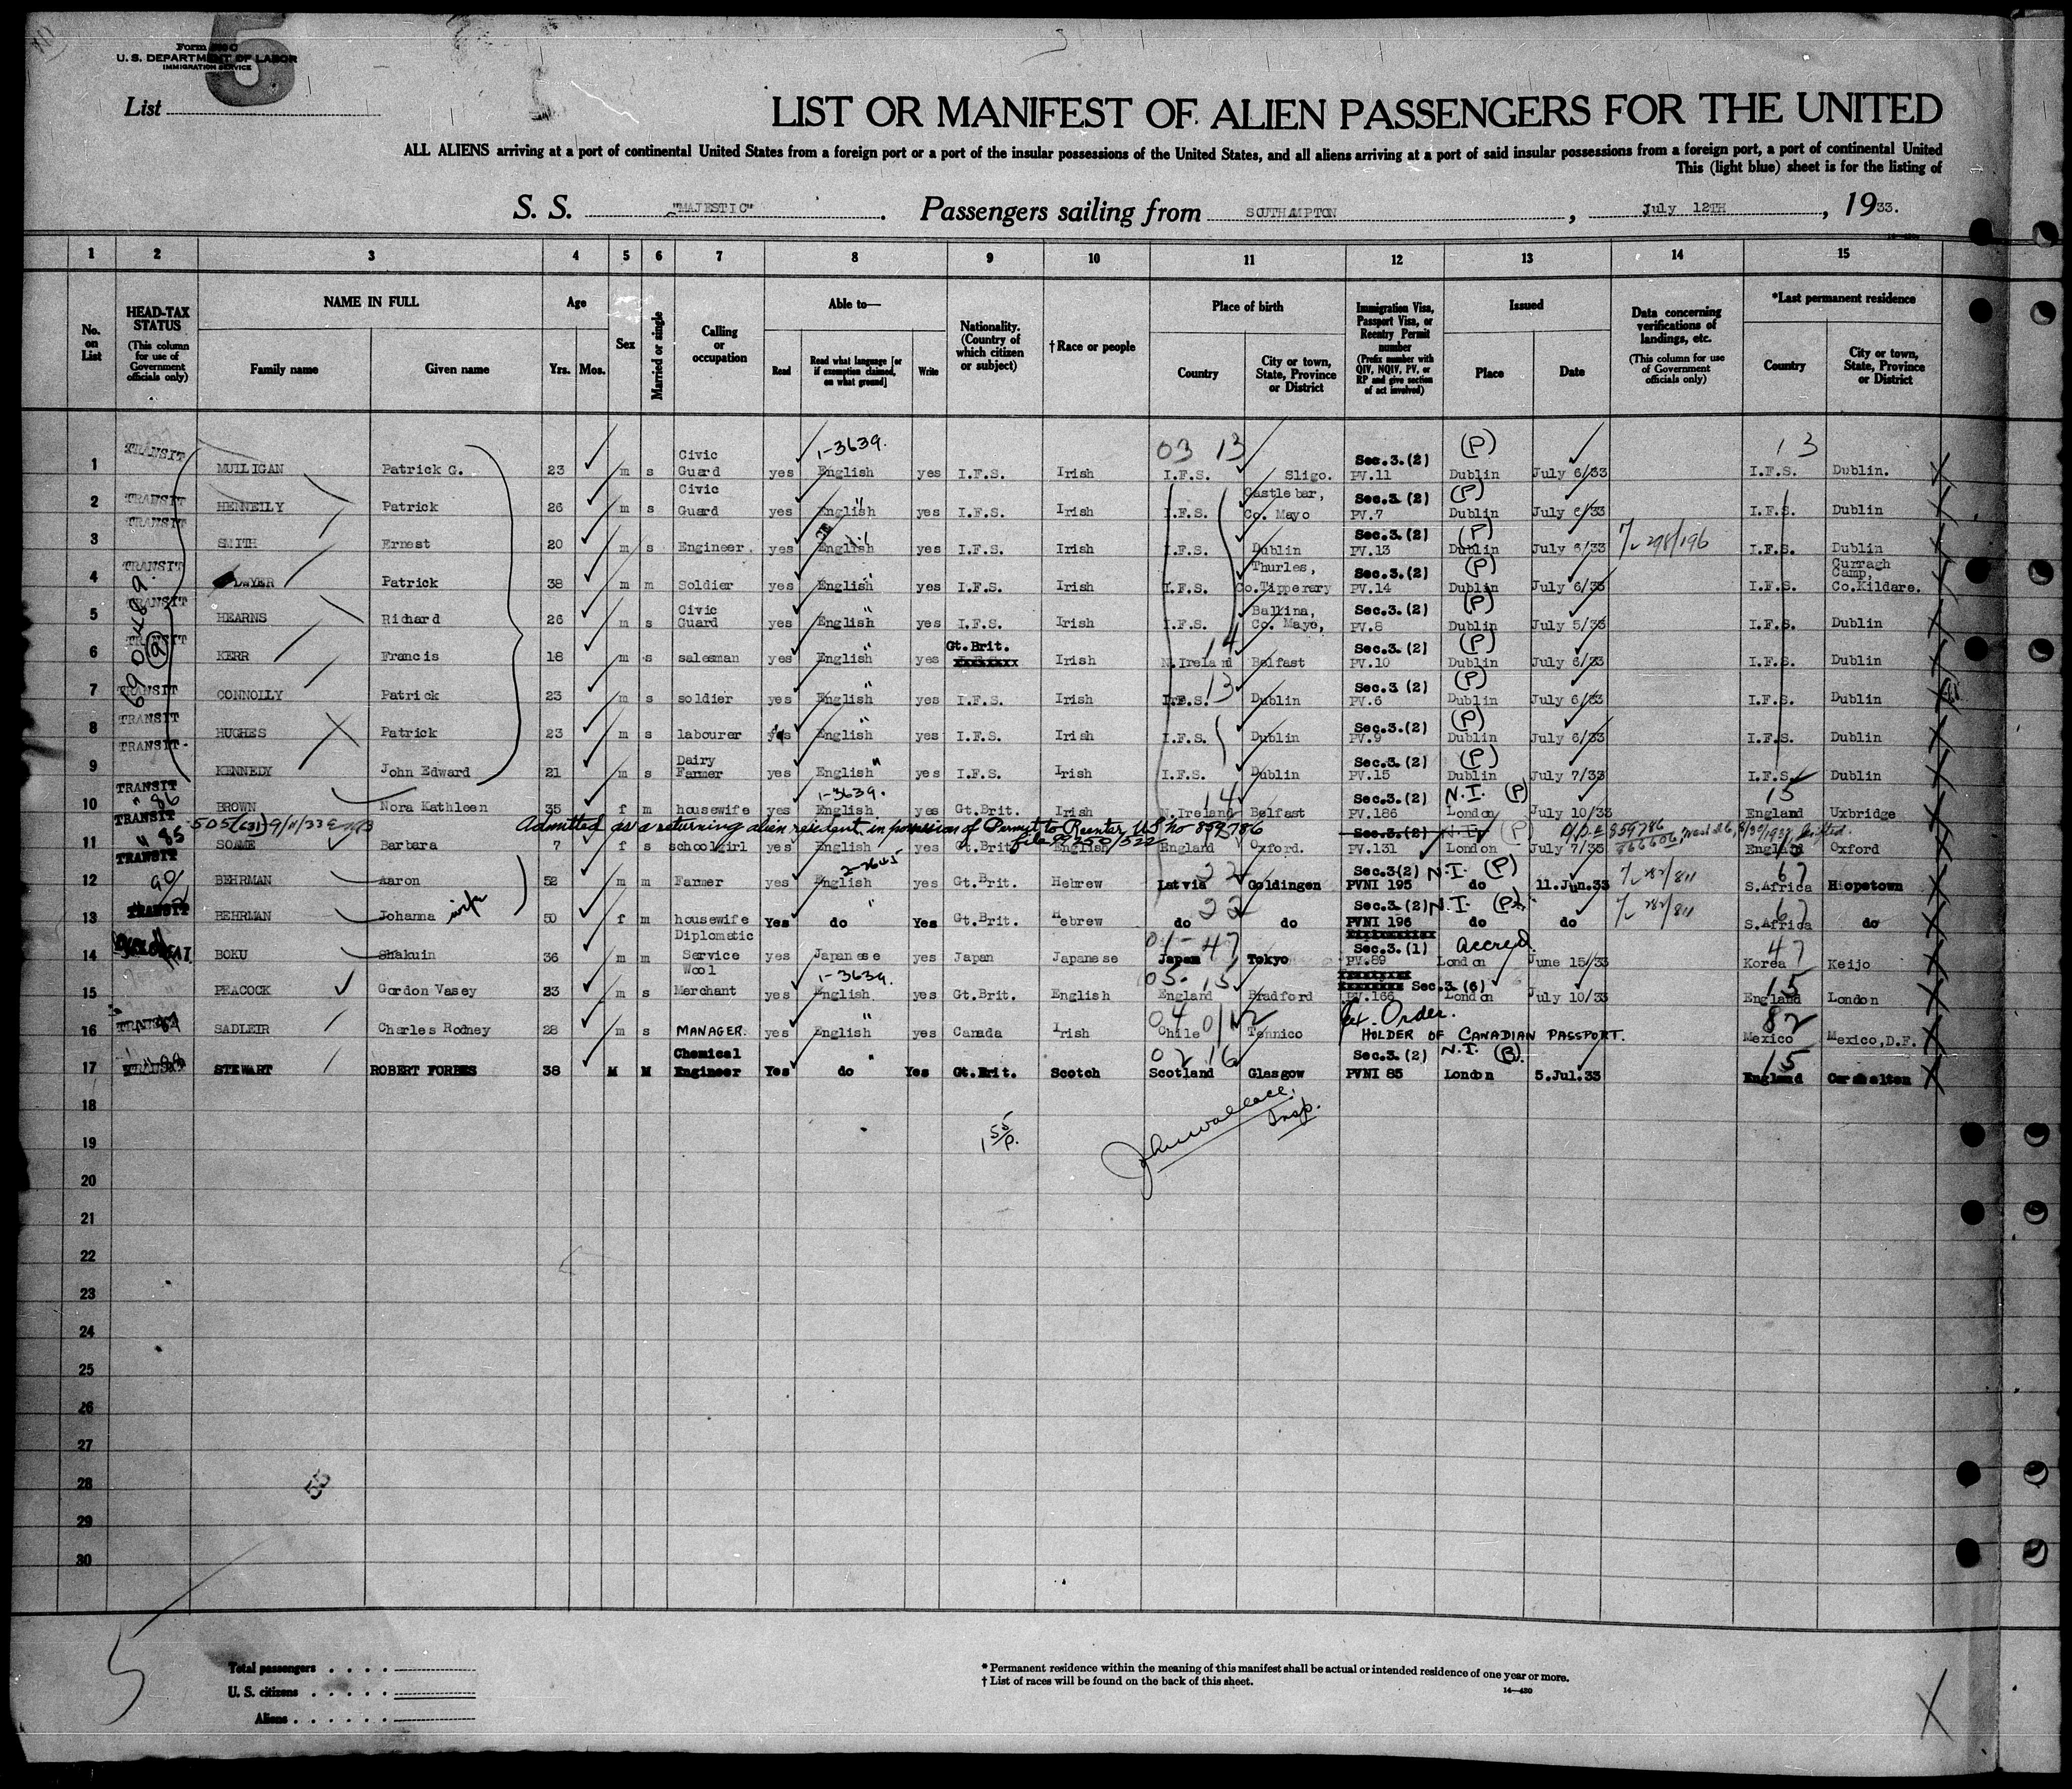 5
Form 500 C
U. S. DEPARTMENT OF LABOR
IMMIGRATION SERVICE
List
LIST OR MANIFEST OF ALIEN PASSENGERS FOR THE UNITED
ALL ALIENS arriving at a port of continental United States from a foreign port or a port of the insular possessions of the United States, and all aliens arriving at a port of said insular possessions from a foreign port, a port of continental United
This (light blue) sheet is for the listing of
S. S. "MAJESTIC". Passengers sailing from SOUTHAMPTON, July 12TH, 1933.
1 2 3 4 5 6 7 8 9 10 11 12 13 14 15
No. on List
HEAD-TAX STATUS (This column for use of Government officials only)
NAME IN FULL
Family name Given name
Age
Yrs. Mos.
Sex
Married or single
Calling or occupation
Able to—
Read Read what language [or if exemption claimed, on what ground] Write
Nationality. (Country of which citizen or subject)
†Race or people
Place of birth
Country City or town, State, Province or District
Immigration Visa, Passport Visa, or Reentry Permit number (Prefix number with QIV, NQIV, PV, or RP and give section of act involved)
Issued
Place Date
Data concerning verifications of landings, etc. (This column for use of Government officials only)
*Last permanent residence
Country City or town, State, Province or District
690489
1 TRANSIT MULLIGAN Patrick G. 23 m s Civic Guard yes 1-3639. English yes I.F.S. Irish 03 13 I.F.S. Sligo. Sec.3.(2) PV.11 (P) Dublin July 6/33 13 I.F.S. Dublin.
2 TRANSIT HENNEILY Patrick 26 m s Civic Guard yes English " yes I.F.S. Irish I.F.S. Castlebar, Co. Mayo Sec.3.(2) PV.7 (P) Dublin July 6/33 I.F.S. Dublin
3 TRANSIT SMITH Ernest 20 m s Engineer. yes English yes I.F.S. Irish I.F.S. Dublin Sec.3.(2) PV.13 (P) Dublin July 6/33 298/196 I.F.S. Dublin
4 TRANSIT DWYER Patrick 38 m m Soldier yes English " yes I.F.S. Irish I.F.S. Thurles, Co.Tipperary Sec.3.(2) PV.14 (P) Dublin July 6/33 I.F.S. Curragh Camp, Co.Kildare.
5 TRANSIT HEARNS Richard 26 m s Civic Guard yes English " yes I.F.S. Irish I.F.S. Ballina, Co. Mayo, Sec.3.(2) PV.8 (P) Dublin July 5/33 I.F.S. Dublin
6 TRANSIT KERR Francis 18 m s salesman yes English " yes Gt.Brit. Irish 14 N.Ireland Belfast Sec.3.(2) PV.10 (P) Dublin July 6/33 I.F.S. Dublin
7 TRANSIT CONNOLLY Patrick 23 m s soldier yes English " yes I.F.S. Irish 13 I.F.S. Dublin Sec.3 (2) PV.6 (P) Dublin July 6/33 I.F.S. Dublin
8 TRANSIT HUGHES Patrick 23 m s labourer yes English " yes I.F.S. Irish I.F.S. Dublin Sec.3.(2) PV.9 (P) Dublin July 6/33 I.F.S. Dublin
9 TRANSIT KENNEDY John Edward 21 m s Dairy Farmer yes English " yes I.F.S. Irish I.F.S. Dublin Sec.3.(2) PV.15 (P) Dublin July 7/33 I.F.S. Dublin
10 TRANSIT " 86 BROWN Nora Kathleen 35 f m housewife yes 1-3639. English yes Gt.Brit. Irish 14 N.Ireland Belfast Sec.3.(2) PV.186 N.I. (P) London July 10/33 15 England Uxbridge
505(631) 9/11/33 Admitted as a returning alien resident in possession of Permit to Reenter US No 859786
11 TRANSIT " 85 SOAME Barbara 7 f s schoolgirl yes English yes Gt.Brit English England Oxford. Sec.3.(2) PV.131 N.I. (P) London July 7/33 859786 England Oxford
12 TRANSIT 90 BEHRMAN Aaron 52 m m Farmer yes 2-2645 English yes Gt.Brit. Hebrew 22 Latvia Goldingen Sec.3(2) PVNI 195 N.I. (P) do 11.Jun.33 282/811 67 S.Africa Hopetown
13 TRANSIT BEHRMAN Johanna wife 50 f m housewife Yes do " Yes Gt.Brit. Hebrew 22 do do Sec.3.(2) PVNI 196 N.I. do do 282/811 67 S.Africa do
14 BOKU Shakuin 36 m m Diplomatic Service yes Japanese yes Japan Japanese 01-47 Japan Tokyo Sec.3.(1) PV.89 Accred. London June 15/33 47 Korea Keijo
15 PEACOCK Gordon Vasey 23 m s Wool Merchant yes 1-3639. English yes Gt.Brit. English 05-15 England Bradford Sec.3.(6) PV.166 London July 10/33 15 England London
16 TRANSIT SADLEIR Charles Rodney 28 m s MANAGER. yes English " yes Canada Irish 04 Chile Temnico Ex. Order. HOLDER OF CANADIAN PASSPORT. 82 Mexico Mexico,D.F.
17 TRANSIT STEWART ROBERT FORBES 38 M M Chemical Engineer Yes do " Yes Gt.Brit. Scotch 02 16 Scotland Glasgow Sec.3.(2) PVNI 85 N.I. London 5.Jul.33 15 England Carshalton
18
19
John Wallace. Insp.
20
21
22
23
24
25
26
27
28
29
30
55
5
Total passengers
U. S. citizens
Aliens
* Permanent residence within the meaning of this manifest shall be actual or intended residence of one year or more.
† List of races will be found on the back of this sheet.
14—430